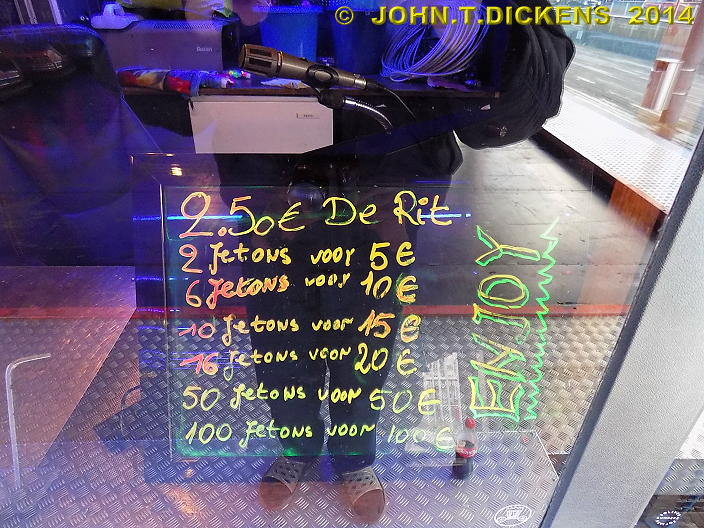 © JOHN.T.DICKENS 2014
2.50€ De Rit
2 Jetons voor 5€
6 Jetons voor 10€
10 Jetons voor 15€
16 Jetons voor 20€
50 Jetons voor 50€
100 Jetons voor 100€
ENJOY